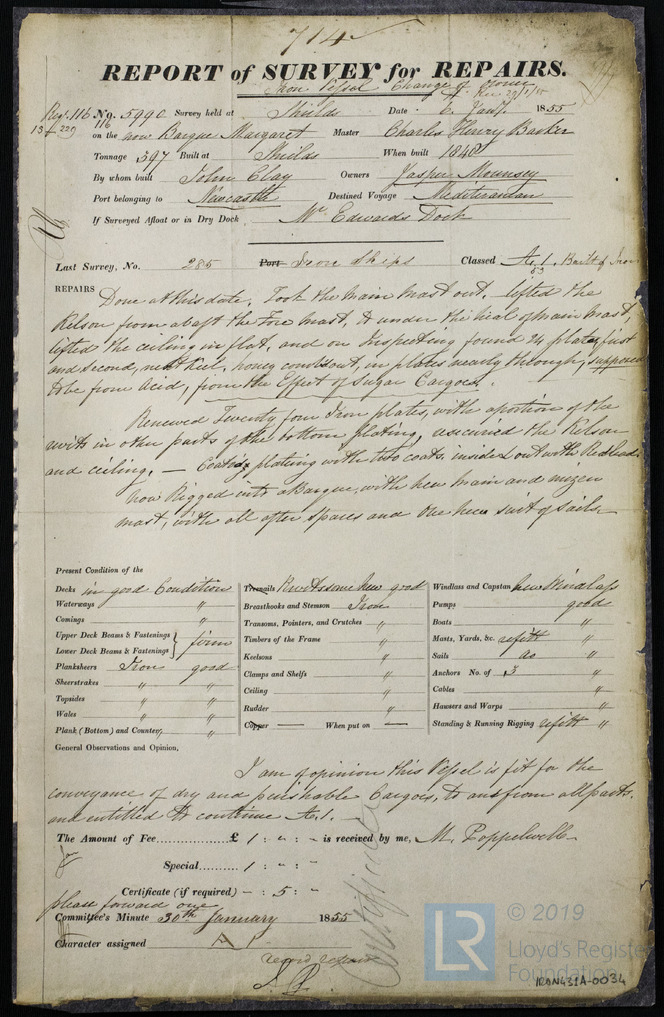 714
REPORT of SURVEY for REPAIRS.
Iron Vessel Change of Owner
Rec. 29/1/55
Reg. 116 No. 5990 Survey held at Shields Date 6 Jany. 1855
13 - 229 116 on the now Barque Margaret Master Charles Henry Barker
Tonnage 397 Built at Shields When built 1840
By whom built John Clay Owners Jasper Mounsey
Port belonging to Newcastle Destined Voyage Mediteranian
If Surveyed Afloat or in Dry Dock Mr. Edwards Dock
Last Survey, No. 285 Port Iron Ships Classed A. 1. Built of Iron
53
REPAIRS Done at this date, Took the Main Mast out, lifted the
Kelson from abaft the Fore Mast, to under the heal of Main Mast,
lifted the ceiling in flat, and on Inspecting found 24 plates, first
and second, next keel, honey combd out, in places nearly through, supposed
to be from Acid, from the Effect of Sugar Cargoes.
Renewed Twenty four Iron plates, with aportion of the
rivits in other parts of the bottom plating, resecured the Kelson
and ceiling, — Coating plating with two coats, inside & out with Red lead.
Now Rigged into a Barque, with new Main and mizen
mast, with all after spares and One new suit of Sails.
Present Condition of the
Decks in good Condition
Waterways "
Comings "
Upper Deck Beams & Fastenings
Lower Deck Beams & Fastenings } firm
Planksheers Iron good
Sheerstrakes " "
Topsides " "
Wales " "
Plank (Bottom) and Counter, " "
Treenails Rivets some New good
Breasthooks and Stemson Iron
Transoms, Pointers, and Crutches "
Timbers of the Frame "
Keelsons "
Clamps and Shelfs "
Ceiling "
Rudder "
Copper — When put on —
Windlass and Capstan New Windlass
Pumps good
Boats "
Masts, Yards, &c. refitt "
Sails do "
Anchors No. of 3 "
Cables "
Hawsers and Warps "
Standing & Running Rigging refitt "
General Observations and Opinion,
I am of opinion this Vessel is fit for the
conveyance of dry and perishable Cargoes, to and from all parts.
and entitled to continue A. 1. —
The Amount of Fee............... £ 1 : " : - is received by me, M. Poppelwell
Special.......... 1 : " : "
Certificate (if required) - : 5 : "
please forward one
Committee's Minute 30th January 1855
Character assigned A 1
record repairs
Certificate
LR
© 2019
Lloyd's Register
Foundation
IRON431A-0034